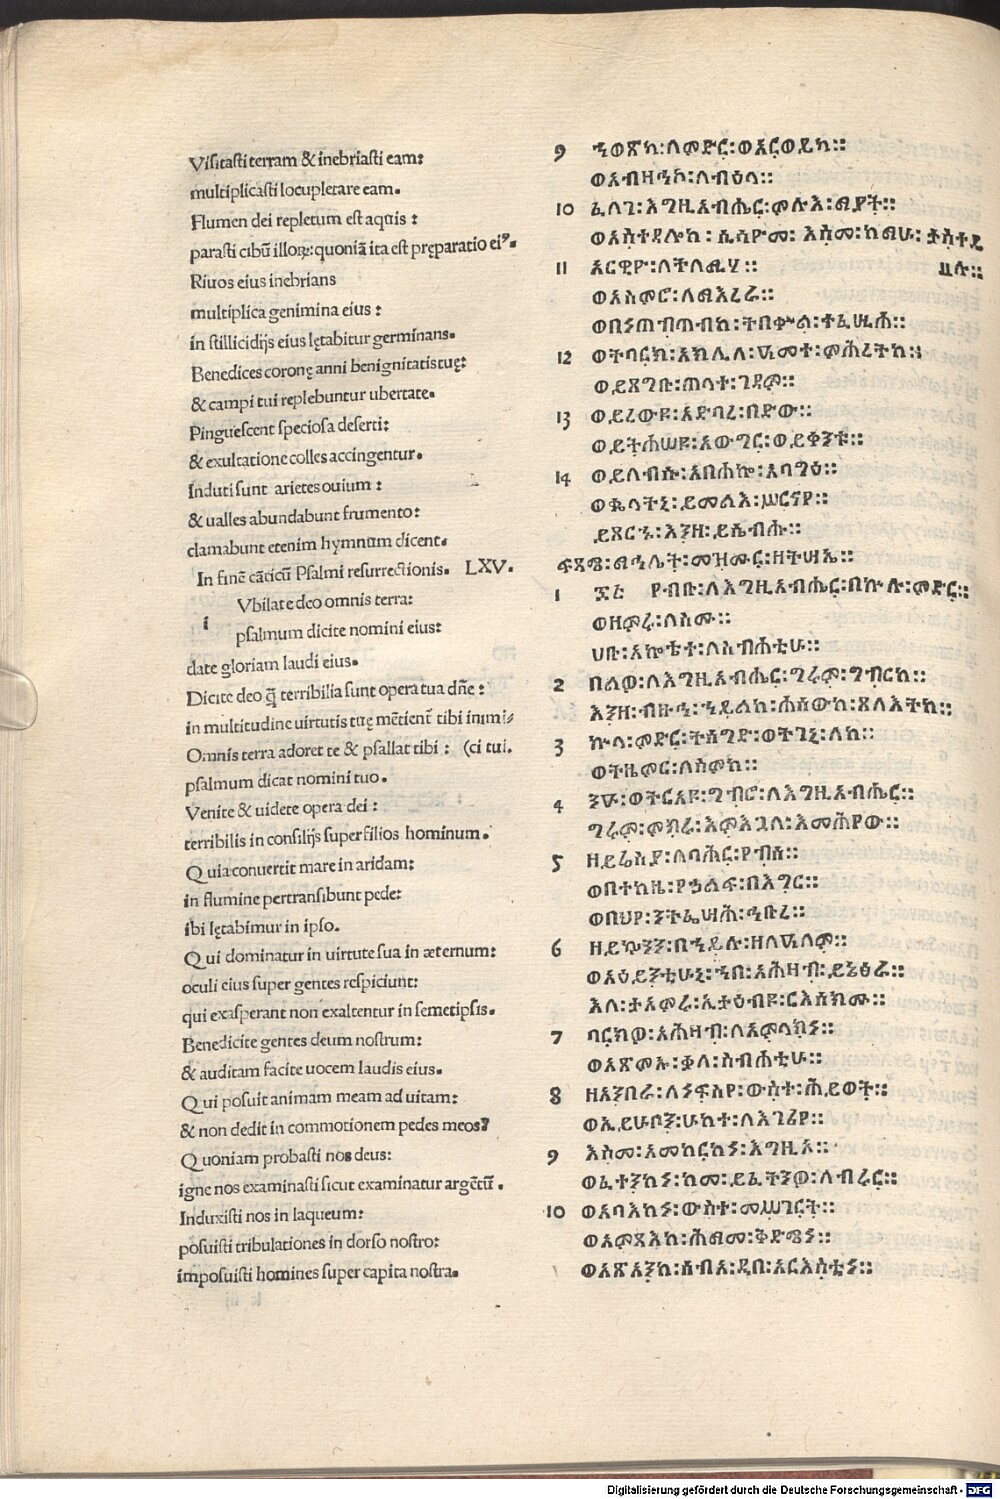 Visitasti terram & inebriasti eam:
multiplicasti locupletare eam.
Flumen dei repletum est aquis :
parasti cibū illoꝝ: quoniā ita est pręparatio eiꝰ.
Riuos eius inebrians
multiplica genimina eius :
in stillicidijs eius lętabitur germinans.
Benedices coronę anni benignitatis tuę:
& campi tui replebuntur ubertate.
Pinguescent speciosa deserti:
& exultatione colles accingentur.
Induti sunt arietes ouium :
& ualles abundabunt frumento:
clamabunt etenim hymnum dicent.
In finē cāticū Psalmi resurrectionis. LXV.
Vbilate deo omnis terra:
i
psalmum dicite nomini eius:
date gloriam laudi eius.
Dicite deo ꝗ̃ terribilia sunt opera tua dñe :
in multitudine uirtutis tuę mētient̄ tibi inimi⸗
Omnis terra adoret te & psallat tibi : (ci tui.
psalmum dicat nomini tuo.
Venite & uidete opera dei :
terribilis in consilijs super filios hominum.
Qui a conuertit mare in aridam:
in flumine pertransibunt pede:
ibi lętabimur in ipso.
Qui dominatur in uirtute sua in æternum:
oculi eius super gentes respiciunt:
qui exasperant non exaltentur in semetipsis.
Benedicite gentes deum nostrum:
& auditam facite uocem laudis eius.
Qui posuit animam meam ad uitam:
& non dedit in commotionem pedes meos?
Quoniam probasti nos deus:
igne nos examinasti sicut examinatur argētū .
Induxisti nos in laqueum:
posuisti tribulationes in dorso nostro:
imposuisti homines super capita nostra.
9 ሐወጽካ፡ለምድር፡ወአርወይካ።
ወአብዛኅኮ፡ለብዕላ።
10 ፈለገ፡እግዚአብሔር፡ምሉእ፡ማያት።
ወአስተዳሎከ፡ሲሳዮሙ፡እስመ፡ከማሁ፡ታስተዴ
11 አርዊዮ፡ለትለሚሃ። ሉ።
ወአስምሮ፡ለማእረራ።
ወበነጠብጣብከ፡ትበቍል፡ተፈሢሓ።
12 ወትባርክ፡አክሊለ፡ዓመተ፡ምሕረትከ፡
ወይጸግቡ፡ጠላተ፡ገዳም።
13 ወይረውዩ፡አድባረ፡በድው።
ወይትሐሠዩ፡አውግር፡ወይቀንቱ።
14 ወይለብሱ፡አበሐኰ፡አባግዕ።
ወቈላትኒ፡ይመልእ፡ሥርናየ።
ይጸርኁ፡እንዘ፡ይሴብሑ።
ፍጻሜ፡ማኅሌት፡መዝሙር፡ዘትሣኤ።
1 ፷፭ የብቡ፡ለእግዚአብሔር፡በኵሉ፡ምድር።
ወዘምሩ፡ለስሙ።
ሀቡ፡አኰቴተ፡ለስብሐቲሁ።
2 በልዎ፡ለእግዚአብሔር፡ግሩም፡ግብርከ።
እንዘ፡ብዙኅ፡ኀይልከ፡ሐሰውከ፡ጸላእትከ።
3 ኵላ፡ምድር፡ትሰግድ፡ወትገኒ፡ለከ።
ወትዜምር፡ለስምከ።
4 ንዑ፡ወትርአዩ፡ግብሮ፡ለእግዚአብሔር።
ግሩም፡ምክሩ፡እምእጓለ፡እመሕያው።
5 ዘይሬስያ፡ለባሕር፡የብሰ።
ወበተከዜ፡የኃልፉ፡በእግር።
ወበህየ፡ንትፌሣሕ፡ኅቡረ።
6 ዘይኴንን፡በኀይሉ፡ዘለዓለም።
ወአዕይንቲሁኒ፡ኀበ፡አሕዛብ፡ይኔፅራ።
እለ፡ታአምሩ፡ኢትዕብዩ፡ርእሰክሙ።
7 ባርክዎ፡አሕዛብ፡ለአምላክነ።
ወአጽምኡ፡ቃለ፡ስብሐቲሁ።
8 ዘአንበራ፡ለነፍስየ፡ውስተ፡ሕይወት።
ወኢይሁቦን፡ሁከተ፡ለእገሪየ።
9 እስመ፡አመከርከነ፡እግዚአ።
ወፈተንከነ፡ከመ፡ይፈትንዎ፡ለብሩር።
10 ወአባእከነ፡ውስተ፡መሥገርት።
ወአምጻእከ፡ሕማመ፡ቅድሜነ።
ወአጽአንከ፡ሰብአ፡ዲበ፡አርእስቲነ።
Digitalisierung gefördert durch die Deutsche Forschungsgemeinschaft - DFG